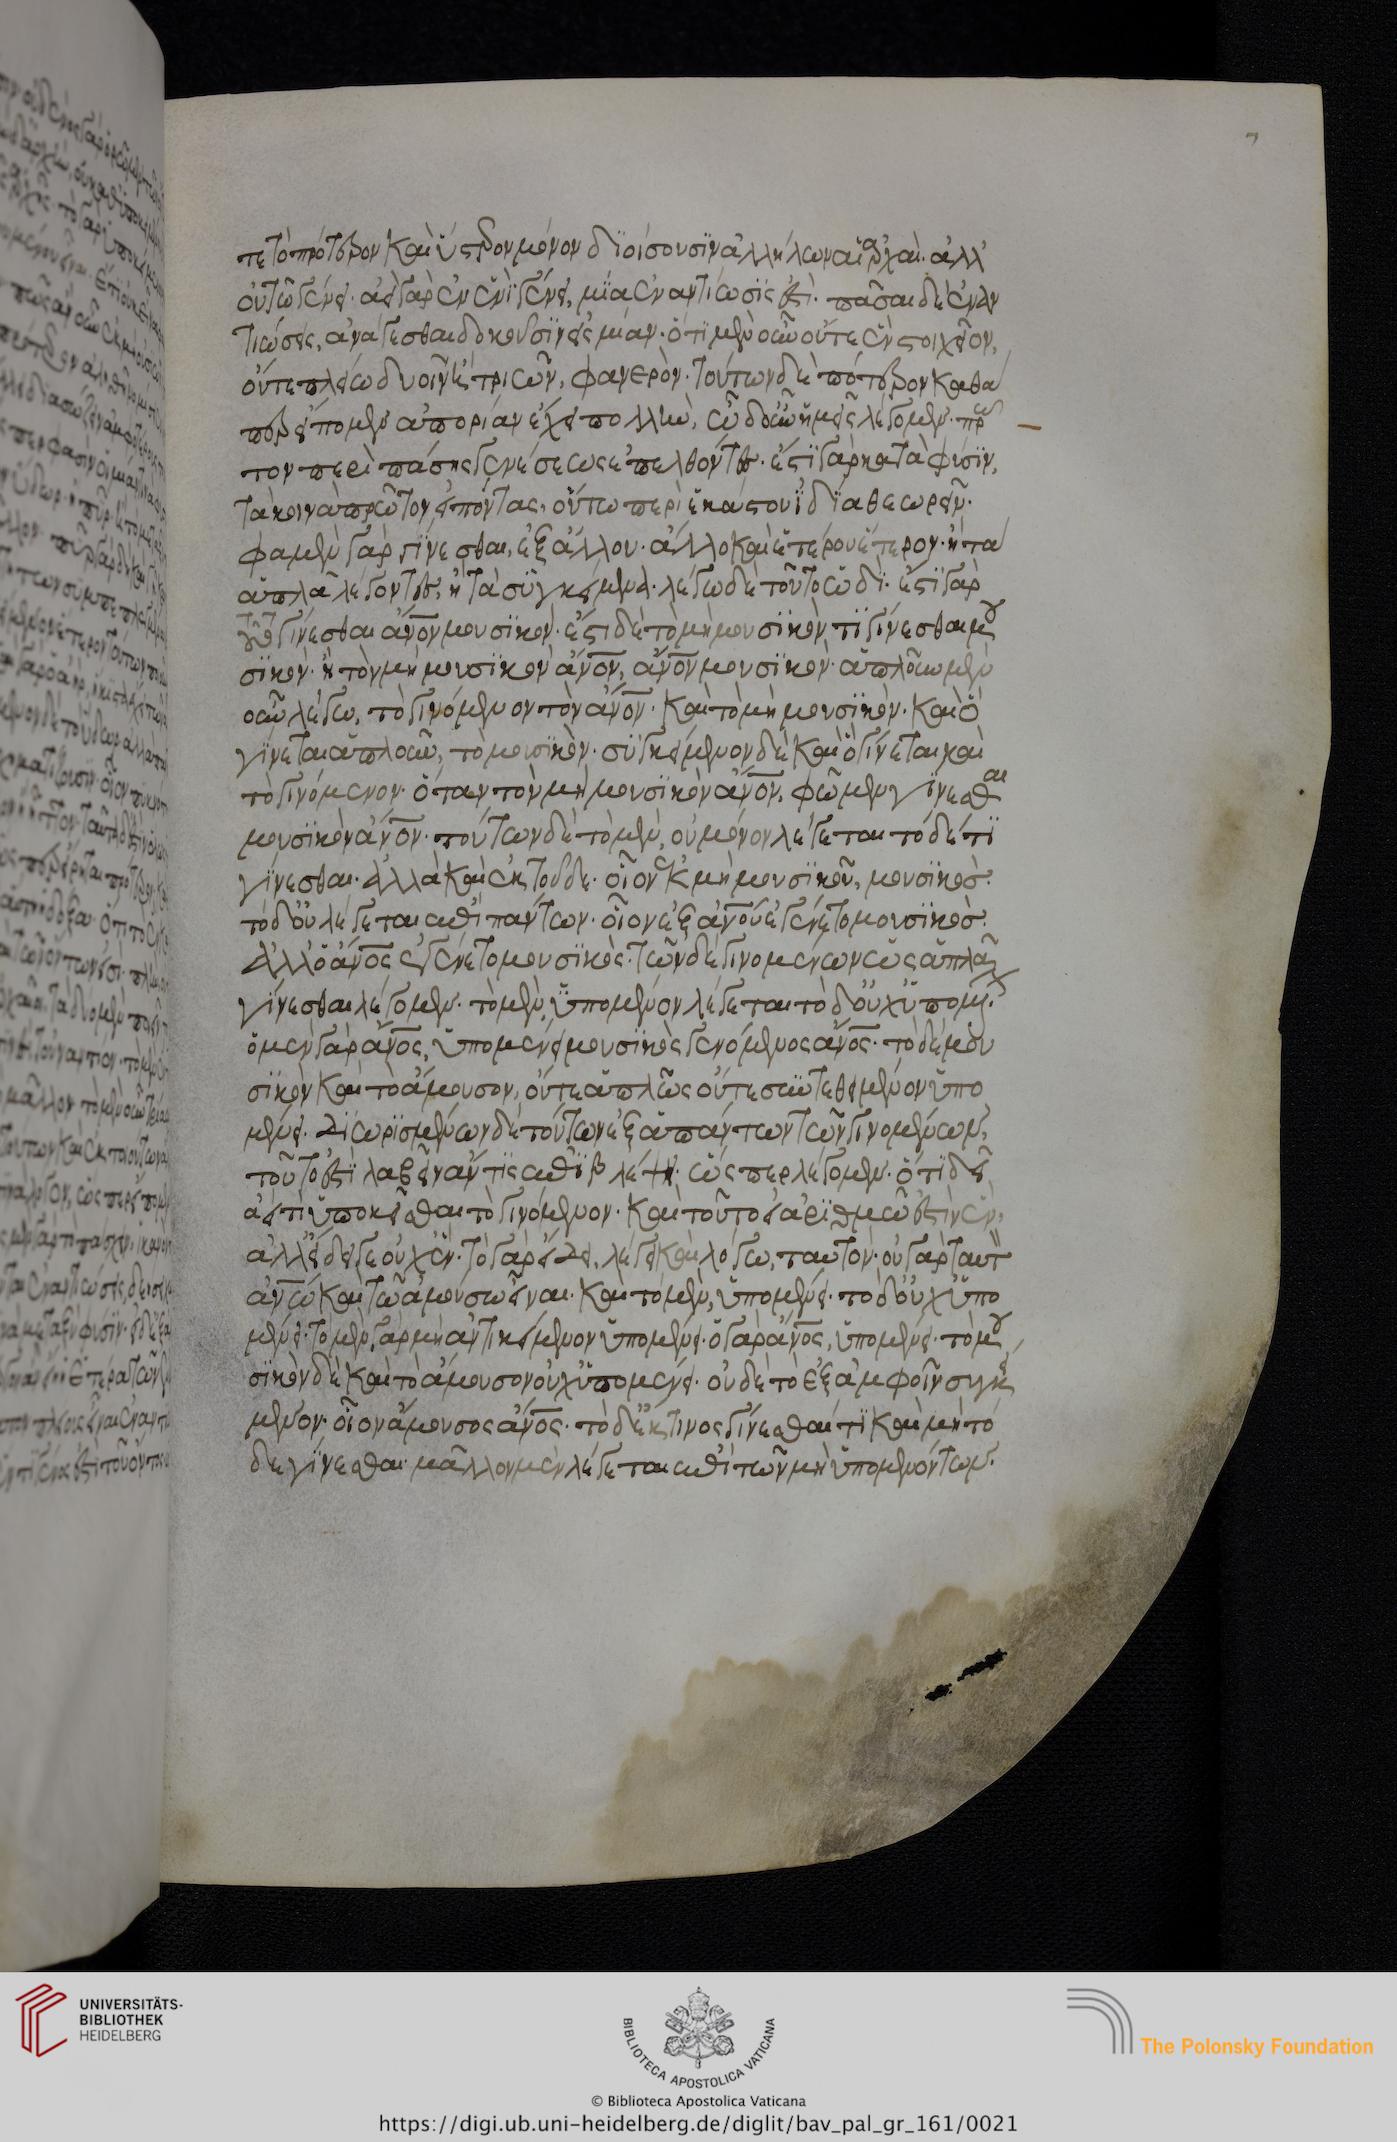 τε τὸ πρότερον καὶ ὕστερον μόνον διοίσουσιν ἀλλήλων αἱ ἀρχαὶ· ἀλλ'
οὐ τῶ γένει· ἀεὶ γὰρ ἐν ἑνὶ γένει, μία ἐναντίωσίς ἐστι· πᾶσαι δὲ ἐναν
τιώσεις, ἀνάγεσθαι δοκοῦσιν εἰς μίαν· ὅτι μὲν οὖν οὔτε ἓν στοιχεῖον,
οὔτε πλείω δυοῖν ἢ τριῶν, φανερὸν· τούτων δὲ πότερον καθά
περ εἴπομεν ἀπορίαν ἔχει πολλὴν, ὧδ' οὖν ἡμεῖς λέγομεν· πρῶ
τον περὶ πάσης γενέσεως ἐπελθόντες· ἔστι γὰρ κατὰ φύσιν,
τὰ κοινὰ πρῶτον εἰπόντας, οὕτω περὶ ἕκαστον ἴδια θεωρεῖν·
φαμὲν γὰρ γίνεσθαι, ἐξ ἄλλου ἄλλο καὶ ἑτέρου ἕτερον· ἢ τὰ
ἁπλᾶ λέγοντες, ἢ τὰ συγκείμενα· λέγω δὲ τοῦτο ὡδὶ· ἔστι γὰρ
γίνεσθαι ἄνον μουσικόν· ἔστι δὲ τὸ μὴ μουσικόν τι γίνεσθαι μου
σικόν· ἢ τὸν μὴ μουσικὸν ἄνον, ἄνον μουσικόν· ἁπλοῦν μὲν
οὖν λέγω, τὸ γινόμενον τὸν ἄνον· καὶ τὸ μὴ μουσικόν· καὶ ὃ
γίνεται ἁπλοῦν, τὸ μουσικὸν· συγκείμενον δὲ καὶ ὃ γίνεται καὶ
τὸ γινόμενον· ὅταν τὸν μὴ μουσικὸν ἄνον, φῶμεν γίνεσθαι
μουσικὸν ἄνον· τούτων δὲ τὸ μὲν, οὐ μόνον λέγεται τόδέ τι
γίνεσθαι· ἀλλὰ καὶ ἐκ τοῦδε· οἷον ἐκ μὴ μουσικοῦ, μουσικὸς·
τὸ δ' οὐ λέγεται ἐπὶ πάντων· οἷον ἐξ ἀνου ἐγένετο μουσικὸς·
ἀλλ' ὁ ἄνος ἐγένετο μουσικὸς· τῶν δὲ γινομένων ὡς ἁπλᾶ
γίνεσθαι λέγομεν· τὸ μὲν, ὑπομένον λέγεται τὸ δ' οὐχ ὑπομέ
ὁ μὲν γὰρ ἄνος, ὑπομένει μουσικὸς γενόμενος ἄνος· τὸ δὲ μὴ μου
σικὸν καὶ τὸ ἄμουσον, οὔτε ἁπλῶς οὔτε συντεθειμένον ὑπο
μένει· διωρισμένων δὲ τούτων ἐξ ἁπάντων τῶν γινομένων,
τοῦτο ἐστὶ λαβεῖν ἄν τις ἐπιβλέψη· ὥσπερ λέγομεν· ὅτι δεῖ
ἀεί τι ὑποκεῖσθαι τὸ γινόμενον· καὶ τοῦτο εἰ ἀριθμῶ ἐστὶν ἓν,
ἀλλ' εἴδει γε οὐχ ἕν· τὸ γὰρ εἴδει, λέγει καὶ λόγω, ταυτὸν· οὐ γὰρ ταυτὸν
ἀνω καὶ τῶ ἀμούσω εἶναι· καὶ τὸ μὲν, ὑπομένει· τὸ δ' οὐχ ὑπο
μένει· τὸ μὲν γὰρ μὴ ἀντικείμενον ὑπομένει· ὁ γὰρ ἄνος, ὑπομένει· τὸ μου
σικὸν δὲ καὶ τὸ ἄμουσον οὐχ ὑπομένει· οὐδὲ τὸ ἐξ ἀμφοῖν συγκεί
μενον· οἷον ἄμουσος ἄνος· τὸ δὲ ἔκ τινος γίνεσθαί τι καὶ μὴ τό
δε γίνεσθαι· μᾶλλον μὲν λέγεται ἐπὶ τῶν μὴ ὑπομενόντων·
UNIVERSITÄTS-
BIBLIOTHEK
HEIDELBERG
BIBLIOTECA APOSTOLICA VATICANA
The Polonsky Foundation
© Biblioteca Apostolica Vaticana
https://digi.ub.uni-heidelberg.de/diglit/bav_pal_gr_161/0021